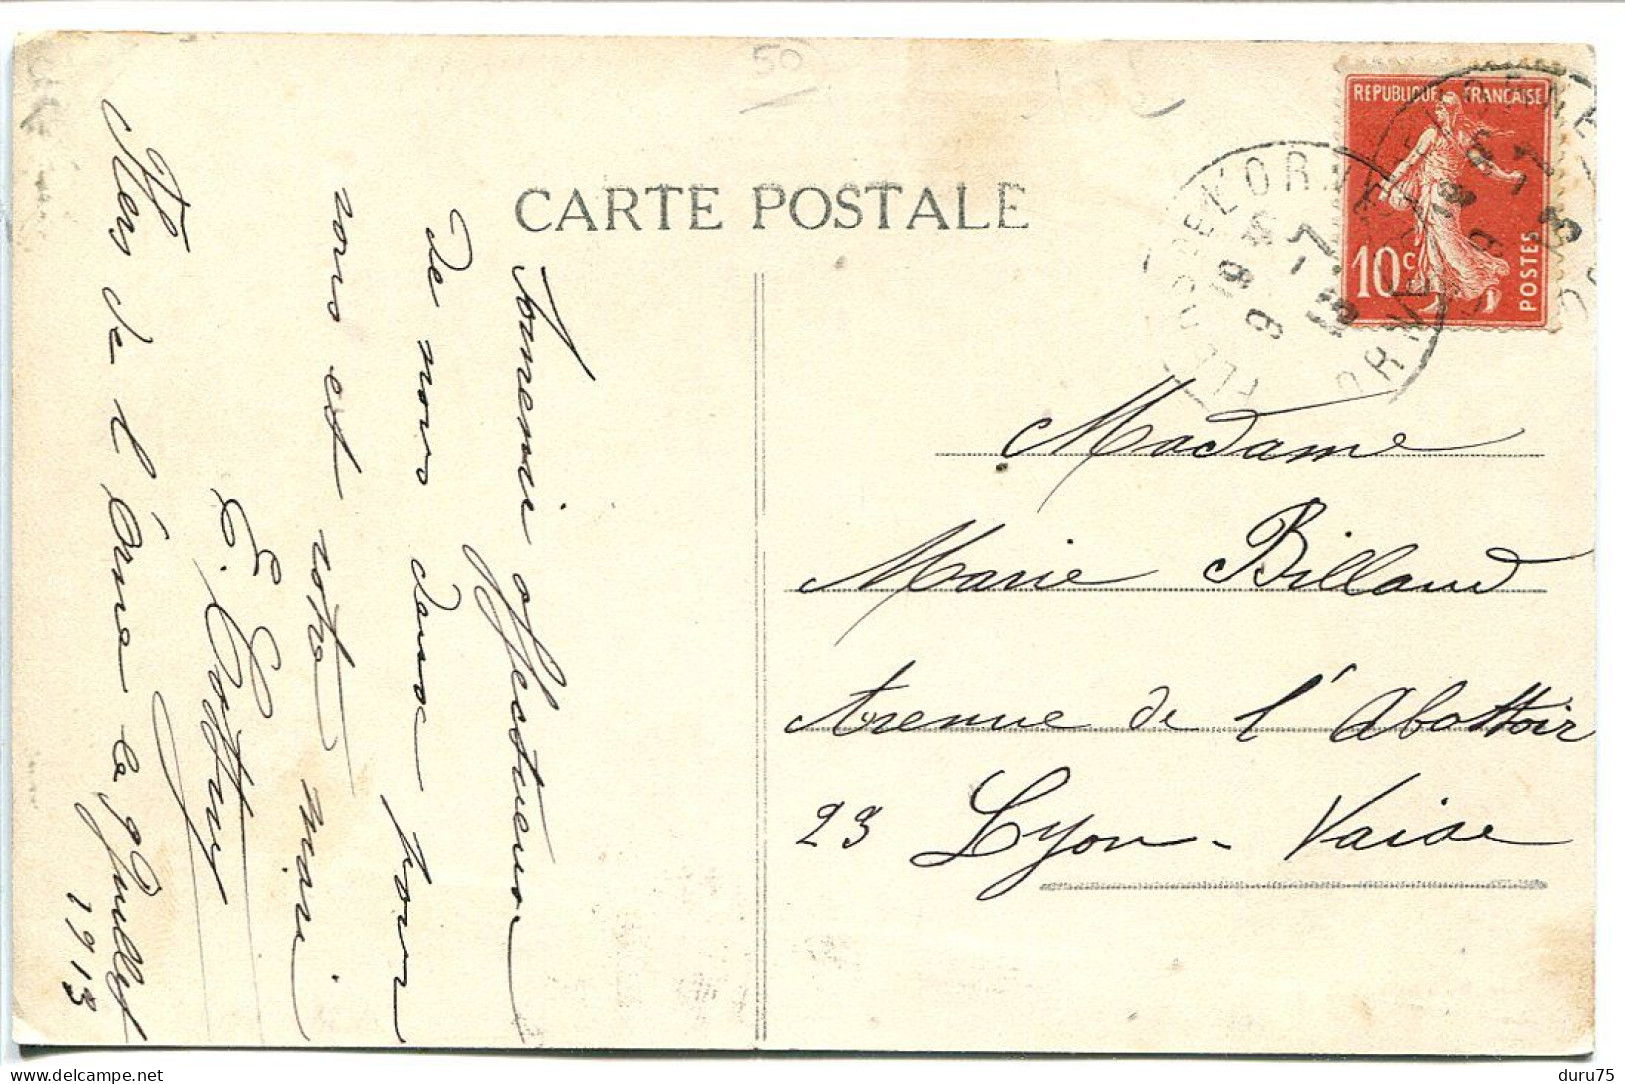 50
CARTE POSTALE
REPUBLIQUE FRANÇAISE
10 c
POSTES
FLERS DE L'ORNE
19 45
9 -7
13
ORNE
Souvenir affectueux
de nous deux pour
vous et votre mari
E. Coffiny
Flers de l'Orne le 9 Juillet
1913
Madame
Marie Billaud
Avenue de l'Abattoir
23 Lyon-Vaise
delcampe.net
duru75